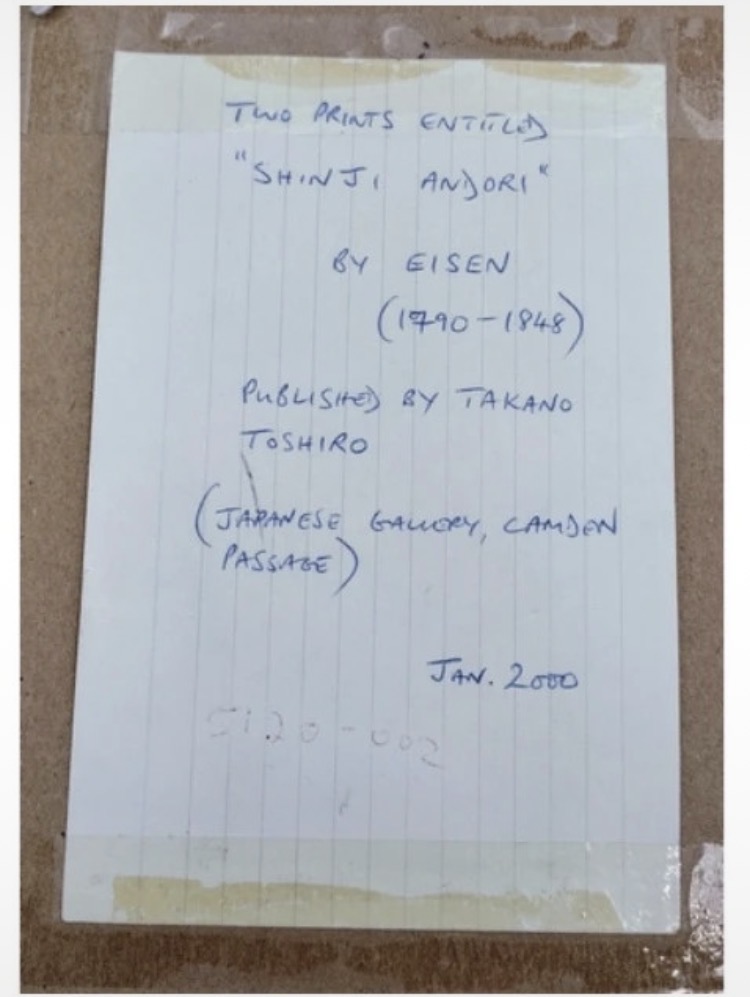 TWO PRINTS ENTITLED
"SHINJI ANDORI"
BY EISEN
(1790-1848)
PUBLISHED BY TAKANO
TOSHIRO
(JAPANESE GALLERY, CAMDEN
PASSAGE)
JAN. 2000